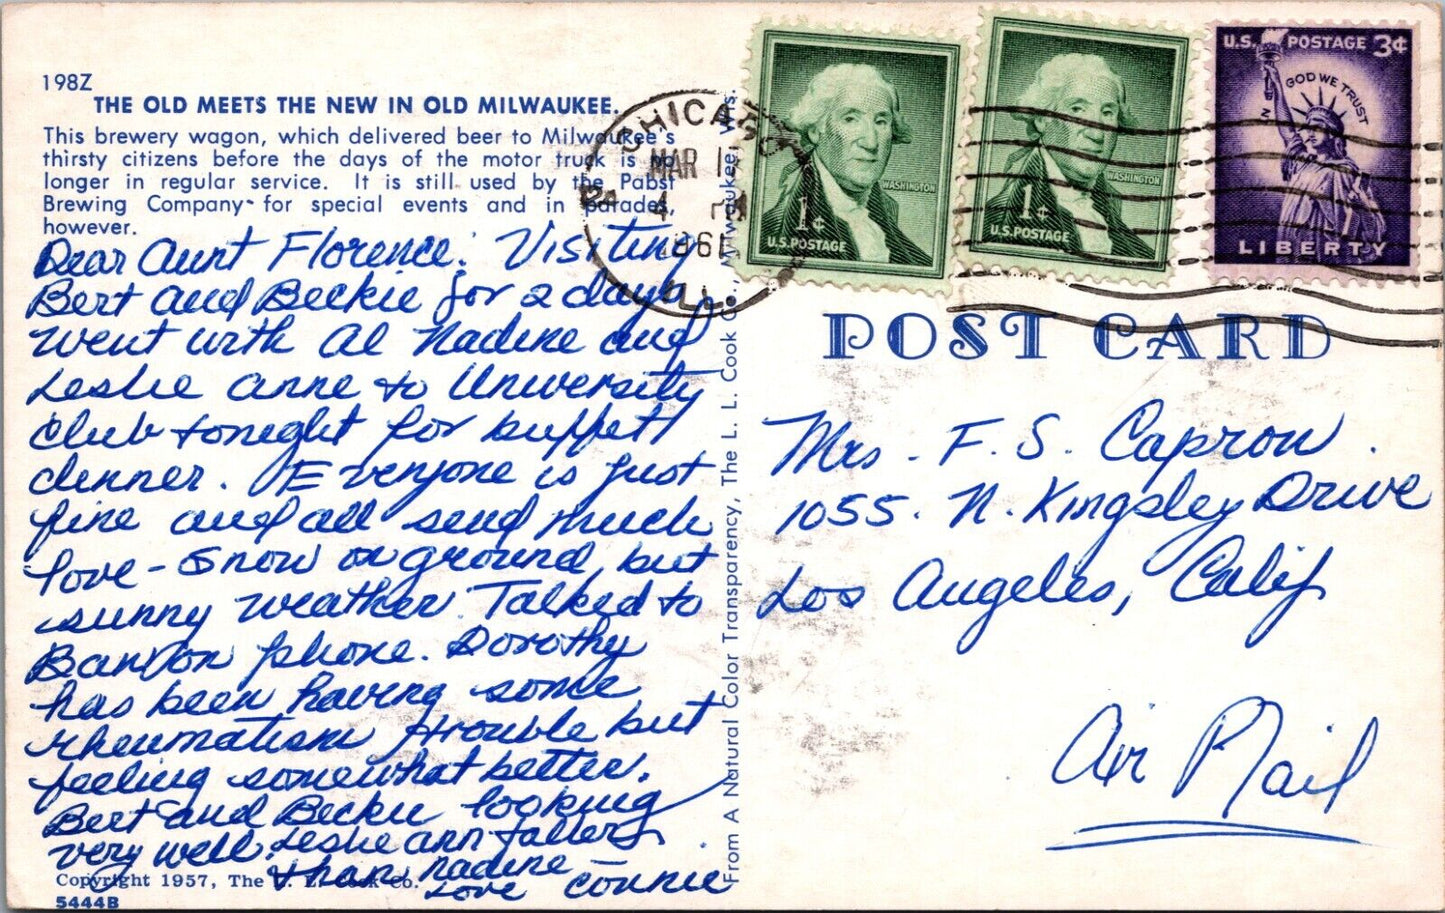 198Z
THE OLD MEETS THE NEW IN OLD MILWAUKEE.
This brewery wagon, which delivered beer to Milwaukee's
thirsty citizens before the days of the motor truck is no
longer in regular service. It is still used by the Pabst
Brewing Company for special events and in parades,
however.
Dear Aunt Florence: Visiting
Bert and Beckie for 2 days
went with Al Nadine and
Leslie Anne to University
Club tonight for buffett
dinner. Everyone is just
fine and all send much
love - Snow on ground, but
sunny weather. Talked to
Bandon phone. Dorothy
has been having some
rheumatism trouble but
feeling somewhat better.
Bert and Beckie looking
very well. Leslie ann taller
than Nadine
Love Connie
Copyright 1957, The L. L. Cook Co.
5444B
From A Natural Color Transparency, The L. L. Cook Co., Milwaukee, Wis.
CHICAGO
MAR
1961
ILL
1¢
WASHINGTON
U.S. POSTAGE
1¢
WASHINGTON
U.S. POSTAGE
U.S. POSTAGE 3¢
IN GOD WE TRUST
LIBERTY
POST CARD
Mrs. F. S. Capron.
1055. N. Kingsley Drive
Los Angeles, Calif
Air Mail